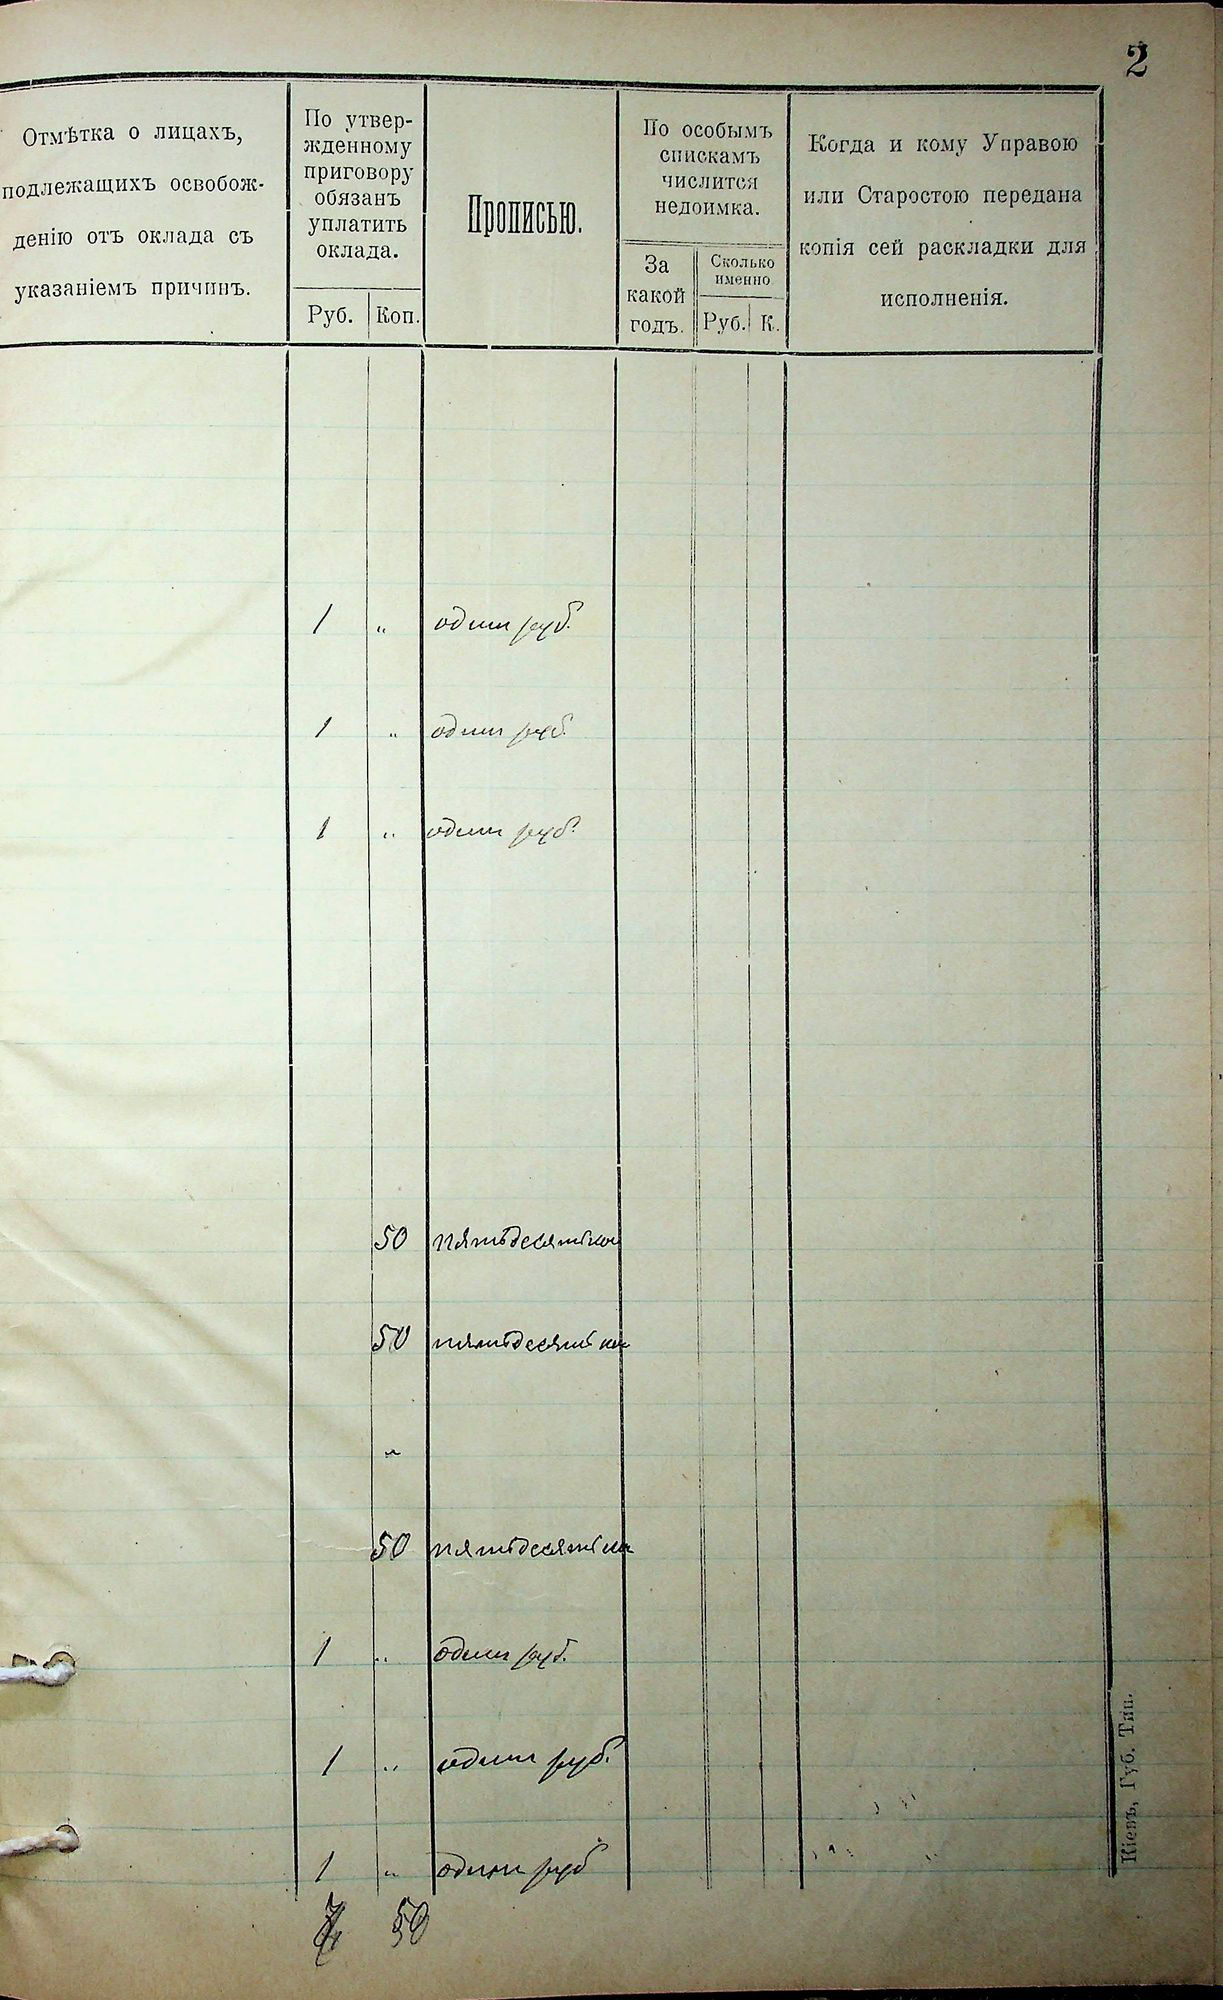 2
Отмѣтка о лицахъ,
подлежащихъ освобож-
денію отъ оклада съ
указаніемъ причинъ.
По утвер-
жденному
приговору
обязанъ
уплатить
оклада.
Руб.
Коп.
Прописью.
По особымъ
спискамъ
числится
недоимка.
За
какой
годъ.
Сколько
именно
Руб.
К.
Когда и кому Управою
или Старостою передана
копія сей раскладки для
исполненія.
1 " один руб.
1 " один руб.
1 " один руб.
50 пятьдесят коп
50 пятьдесят ко
"
50 пятьдесят ко
1 " один руб.
1 " один руб.
1 " один руб
7 50
Кіевъ, Губ. Тип.